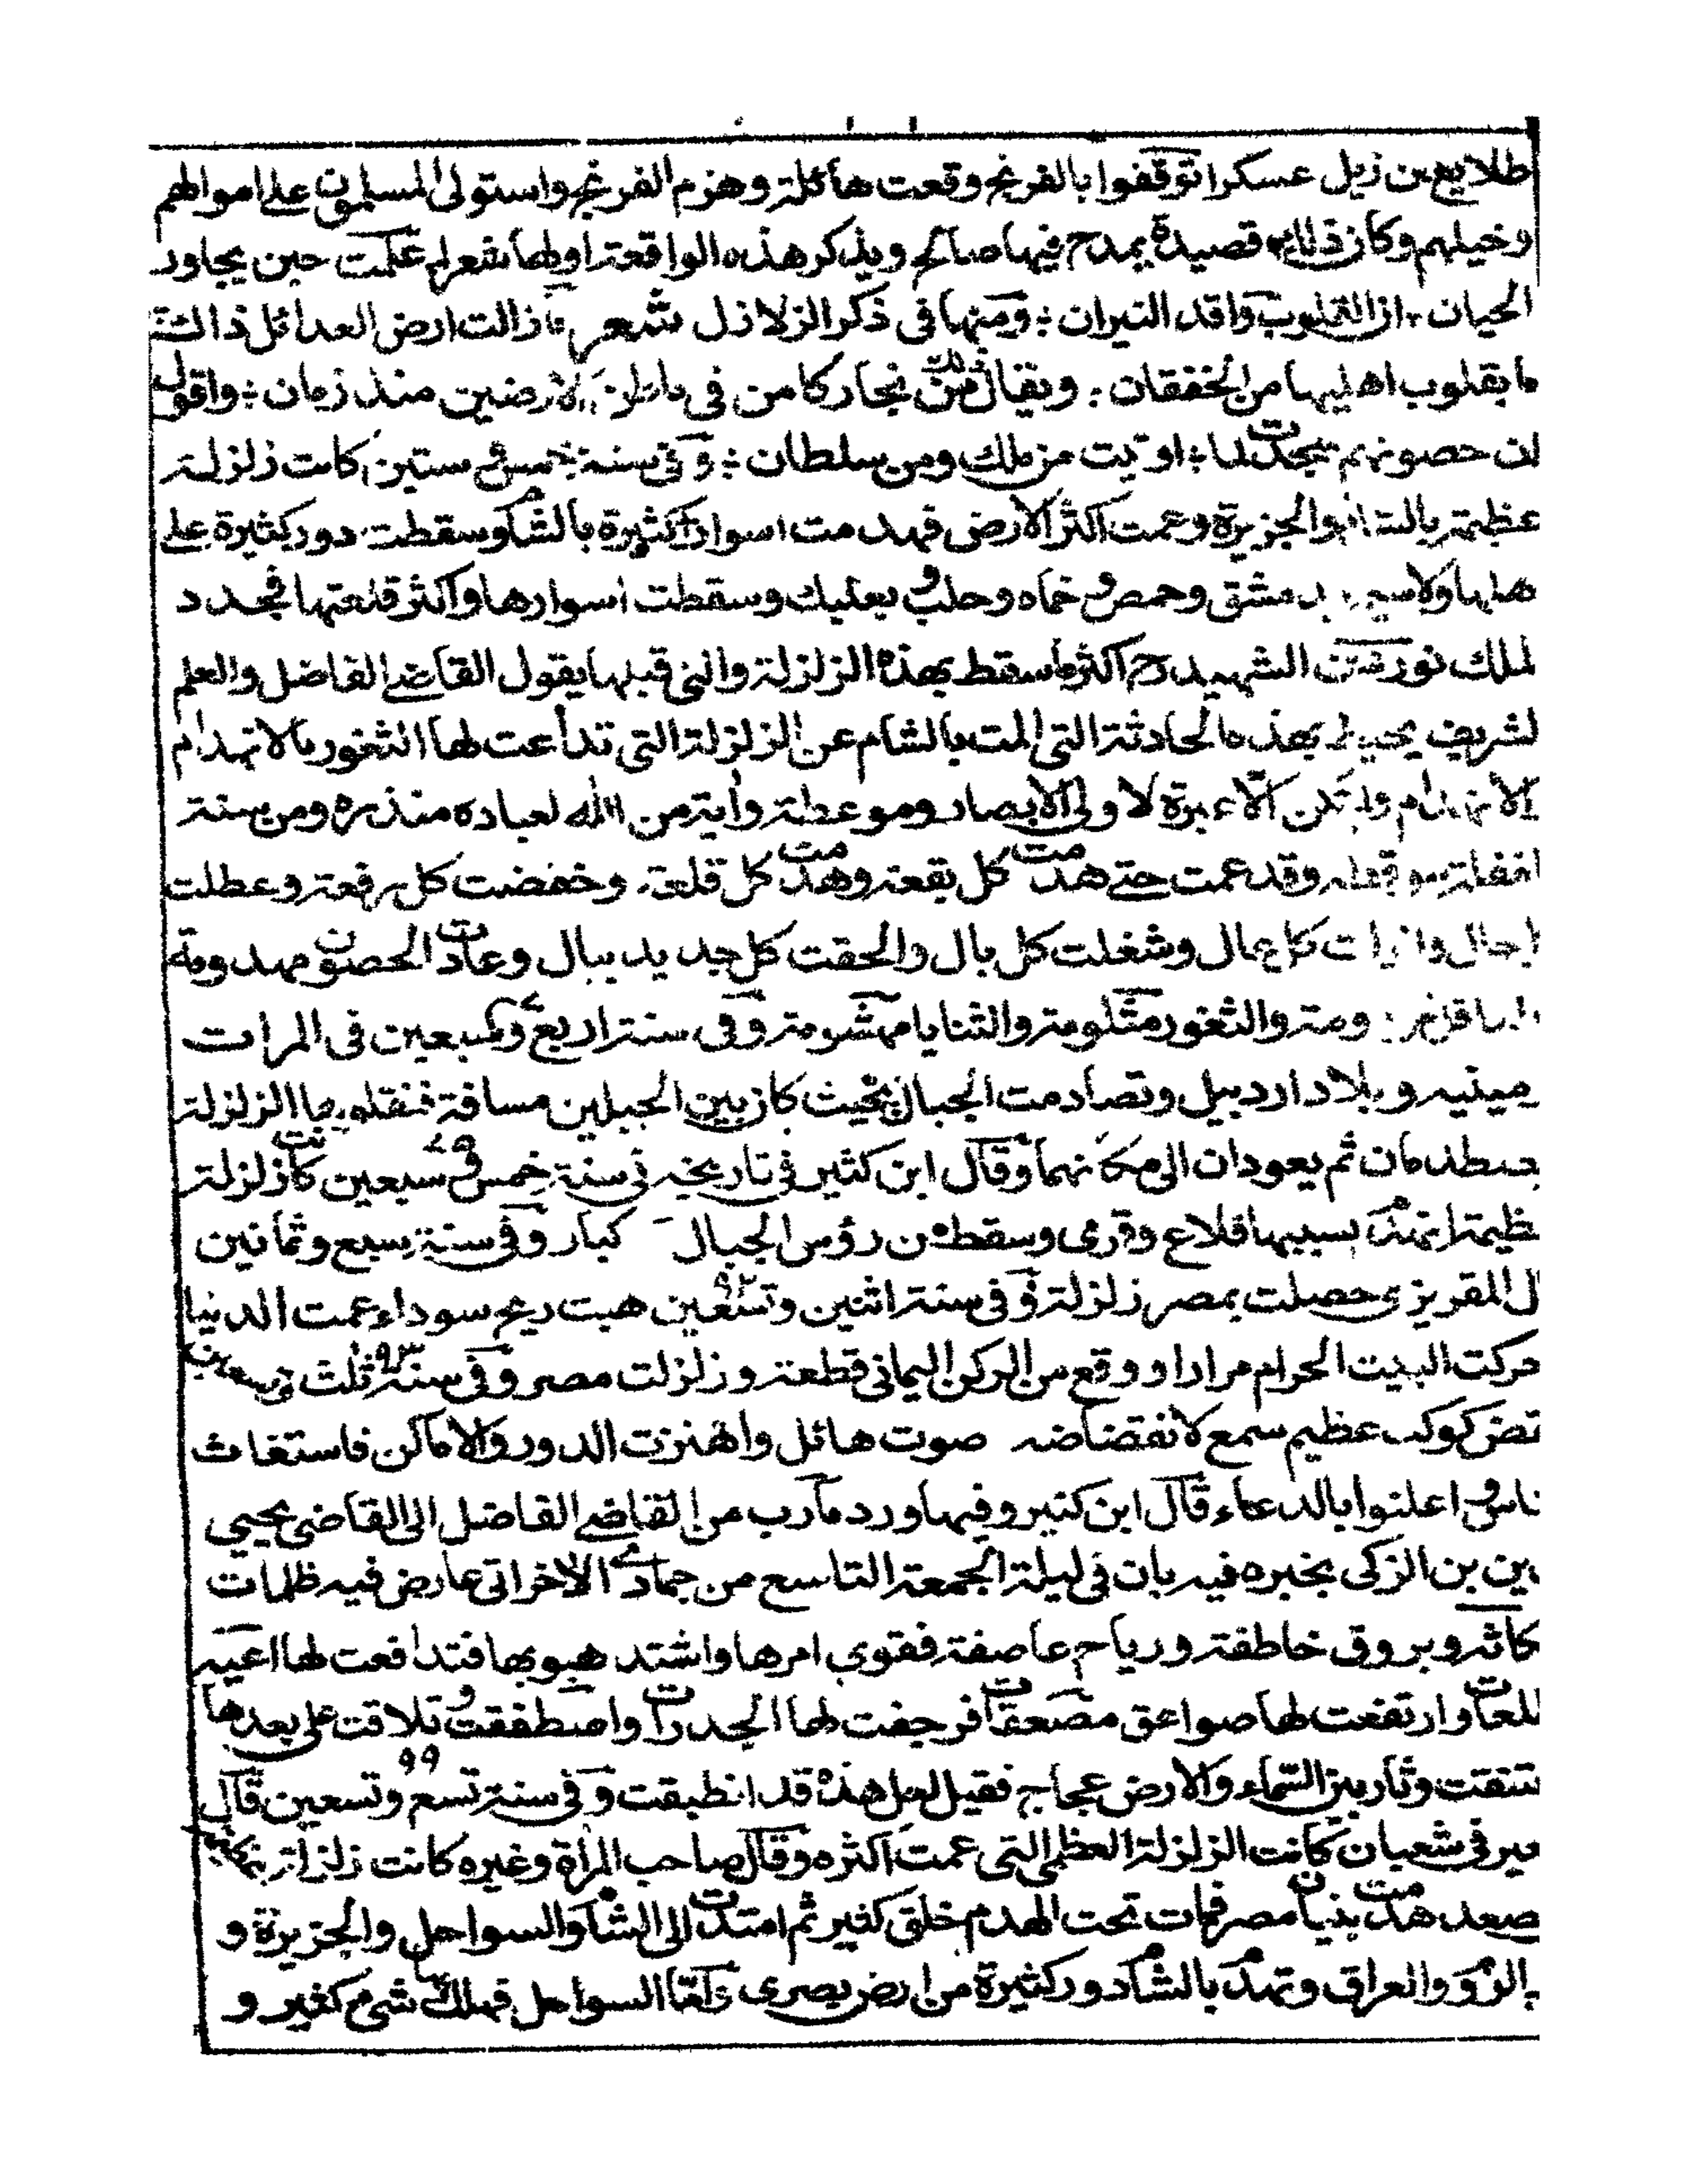 طلايع بن زيل عسكرا توقفوا بالفرنج وقعت هائلة وهزم الفرنج واستولى المسلمون على اموالهم
وخيلهم وكان قصيدة يمدح فيها صالح ويذكر هذه الواقعة اولها شعر علمت حين يجاور
الحيان القلوب واقد النيران ومنها فى ذكر الزلازل شعر ما زالت ارض العدا ئل ذاك
ما بقلوب اهليها من الخفقان ويقال كامن فى باطن الارضين منذ زمان واقول
ان حصونهم اوتيت من ملك ومن سلطان وفى سنة خمس و ستين كانت زلزلة
عظيمة بالشام والجزيرة وعمت اكثر الارض فهدمت اسوارا كثيرة بالشام وسقطت دور كثيرة على
هلها ولا سيما بدمشق وحمص و حماه وحلب و بعلبك وسقطت اسوارها واكثر قلعتها فجدد
لملك نور الشهيد رح اكثر ما سقط بهذه الزلزلة والتي قبلها يقول القاضى الفاضل والعلم
لشريف يحيط بهذه الحادثة التى المت بالشام عن الزلزلة التى تداعت لها الثغور بالانهدام
الانهدام ولم تكن الا عبرة لاولى الابصار وموعظة واية من الله لعباده منذره ومن سنة
وقد عمت حتى هدمت كل بقعة وهدمت كل قلعة وخفضت كل رفعة وعطلت
كل عمال وشغلت كل بال والحقت كل جديد ببال وعادت الحصون مهدومة
ومة والثغور مثلومة والثنايا مهشومة وفى سنة اربع و سبعين فى المرات
مينيه وبلاد اردبيل وتصادمت الجبال بحيث كان بين الجبلين مسافة الزلزلة
يصطدمان ثم يعودان الى مكانهما وقال ابن كثير فى تاريخه فى سنة خمس و سبعين كانت زلزلة
ظيمة انهدم بسببها قلاع وقرى وسقط من رؤس الجبال كبار وفى سنة سبع وثمانين
ل المقريزى حصلت بمصر زلزلة وفى سنة اثنين وتسعين ٩٢ هبت ريح سوداء عمت الدنيا
حركت البيت الحرام مرارا ووقع من الركن اليمانى قطعة وزلزلت مصر وفى سنة ٩٣ ثلث وتسعين
تض كوكب عظيم سمع لانقضاضه صوت هائل واهتزت الدور والاماكن فاستغاث
ناس و اعلنوا بالدعاء قال ابن كثير وفيها ورد من القاضى الفاضل الى القاضى يحيى
ين بن الزكى يخبره فيه بان فى ليلة الجمعة التاسع من جمادى الاخر اتى عارض فيه ظلمات
كاثه وبروق خاطفة ورياح عاصفة فقوى امرها واشتد هبوبها فتدافعت لها اعنيه
للعات وارتفعت لها صواعق مصعقات فرجفت لها الجدرات واصطفقت و تلاقت على بعدها
تنقت وثار بين السماء والارض عجاج فقيل لعل هذه قد انطبقت وفى سنة تسع ٩٩ وتسعين قال
فى شعبان كانت الزلزلة العظمى التى عمت اكثره وقال صاحب المرأة وغيره كانت زلزلة
صعد هدمت بنيان مصر فمات تحت الهدم خلق كثير ثم امتدت الى الشام والسواحل والجزيرة و
الروم والعراق وتهدم بالشام دور كثيرة من ارض بصرى واما السواحل فهلك بها شىء كثير و